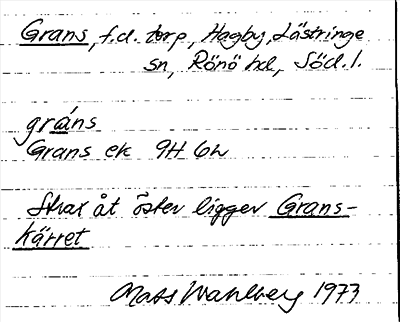 Grans, f.d. torp, Hagby, Lästringe
sn, Rönö hd, Söd.l.
gráns
Grans ek 9H 6h
Strax åt öster ligger Grans-
kärret
Mats Wahlberg 1973